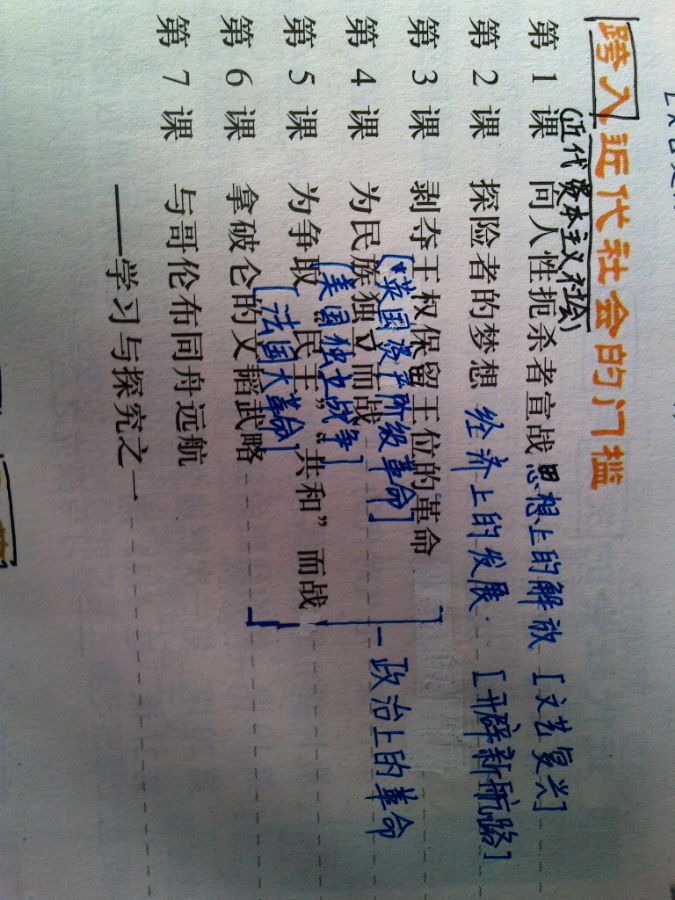 跨入近代社会的门槛
(近代资本主义社会)
第1课 向人性扼杀者宣战 思想上的解放 [文艺复兴]
第2课 探险者的梦想 经济上的发展. [开辟新航路]
第3课 剥夺王权保留王位的革命
[英国资产阶级革命]
第4课 为民族独立而战
[美国独立战争]
第5课 为争取“民主”“共和”而战
[法国大革命]
政治上的革命
第6课 拿破仑的文韬武略
第7课 与哥伦布同舟远航
——学习与探究之一